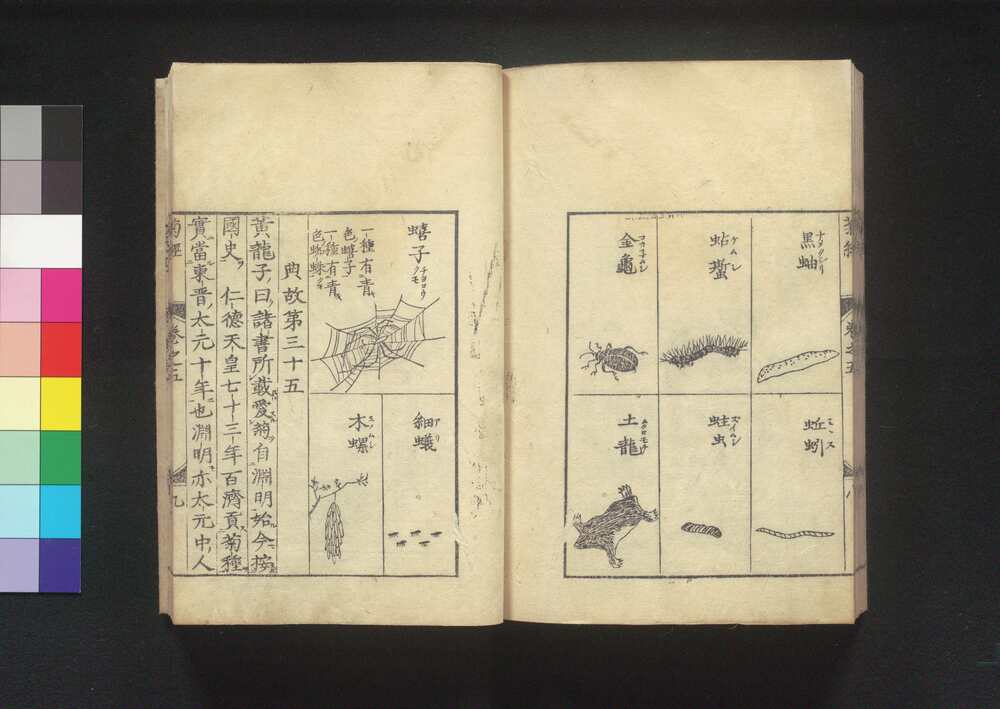 黒蚰
ナメクジリ
蛅蟴
ケムシ
金龜
コガ子ムシ
蚯蚓
ミヽス
蛀虫
スイムシ
土龍
ムクロモチ
蟢子
チヨロウクモ
一種有青
色蟢子
一種有青
色蜘蛛
細蟻
アリ
木螺
ミノムシ
典故第三十五
黃龍子曰諸書所載愛菊自淵明始今按
國史仁德天皇七十三年百濟貢菊種
實當東晋太元十年也淵明亦太元中人
菊經
卷之五
九